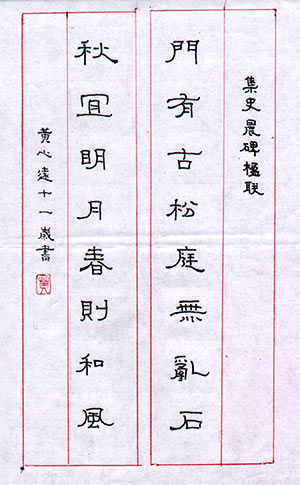 集史晨碑楹联
門有古松庭無亂石
秋宜明月春則和風
黄心遠十一歲書